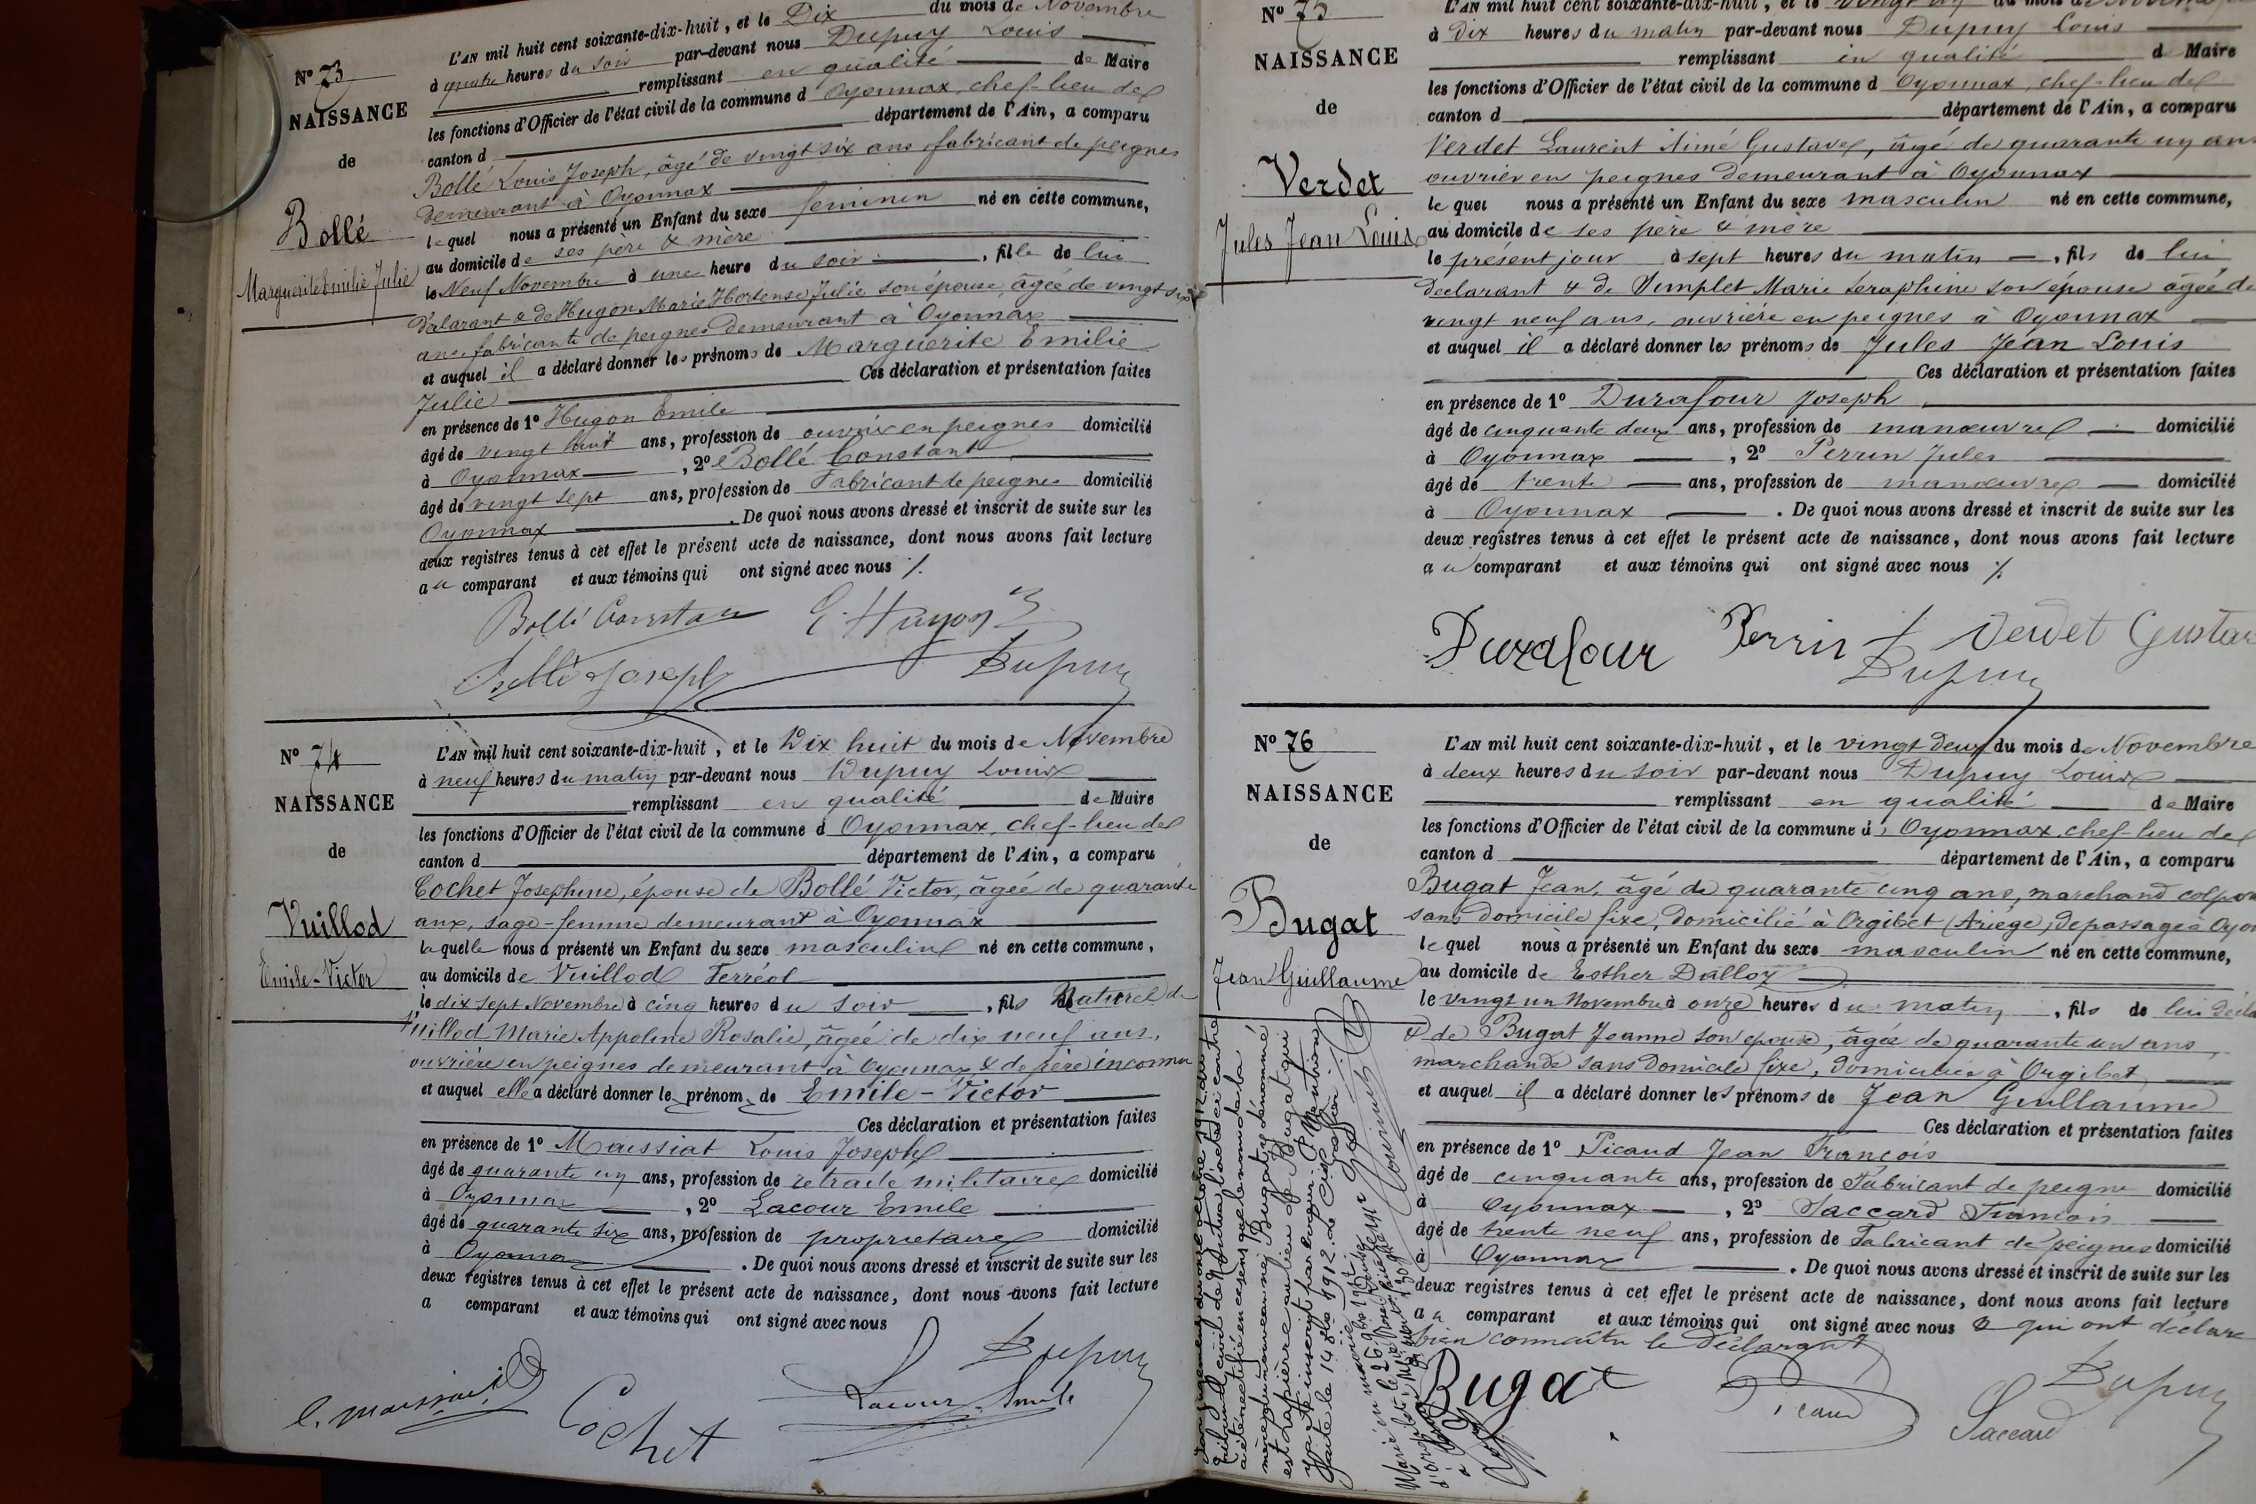 N° 73
NAISSANCE
de
Bollé
Marguerite Emilie Julie
L'AN mil huit cent soixante-dix-huit, et le Dix du mois de Novembre
à quatre heures du soir par-devant nous Dupuy Louis
remplissant en qualité de Maire
les fonctions d'Officier de l'état civil de la commune d Oyonnax, chef-lieu de
canton d département de l'Ain, a comparu
Bollé Louis Joseph, âgé de vingt six ans fabricant de peignes
demeurant à Oyonnax
lequel nous a présenté un Enfant du sexe feminin né en cette commune,
au domicile de ses père & mère
le Neuf Novembre à une heure du soir, fille de lui
déclarant & de Hugon Marie Hortense Julie son épouse, âgée de vingt six
ans fabricante de peignes demeurant à Oyonnax
et auquel il a déclaré donner les prénoms de Marguerite Emilie
Julie Ces déclaration et présentation faites
en présence de 1° Hugon Emile
âgé de vingt huit ans, profession de ouvrier en peignes domicilié
à Oyonnax, 2° Bollé Constant
âgé de vingt sept ans, profession de Fabricant de peignes domicilié
Oyonnax. De quoi nous avons dressé et inscrit de suite sur les
deux registres tenus à cet effet le présent acte de naissance, dont nous avons fait lecture
au comparant et aux témoins qui ont signé avec nous ./.
Bollé Constan E. Hugon
Bollé Joseph Dupuy
N° 74
NAISSANCE
de
Vuillod
Emile-Victor
L'AN mil huit cent soixante-dix-huit, et le Dix huit du mois de Novembre
à neuf heures du matin par-devant nous Dupuy Louis
remplissant en qualité de Maire
les fonctions d'Officier de l'état civil de la commune d Oyonnax, chef-lieu de
canton d département de l'Ain, a comparu
Cochet Josephine, épouse de Bollé Victor, âgée de quarante
ans, sage-femme demeurant à Oyonnax
laquelle nous a présenté un Enfant du sexe masculin né en cette commune,
au domicile de Vuillod Ferréol
le dix sept Novembre à cinq heures du soir, fils Naturel de
Vuillod Marie Appoline Rosalie, âgée de dix neuf ans,
ouvrière en peignes demeurant à Oyonnax & de père inconnu
et auquel elle a déclaré donner le prénom de Emile-Victor
Ces déclaration et présentation faites
en présence de 1° Maissiat Louis Joseph
âgé de quarante un ans, profession de retraite militaire domicilié
à Oyonnax, 2° Lacour Emile
âgé de quarante six ans, profession de proprietaire domicilié
à Oyonnax. De quoi nous avons dressé et inscrit de suite sur les
deux registres tenus à cet effet le présent acte de naissance, dont nous avons fait lecture
a comparant et aux témoins qui ont signé avec nous
Dupuy
L. Maissiat Cochet Lacour Emile
N° 75
NAISSANCE
de
Verdet
Jules Jean Louis
L'AN mil huit cent soixante-dix-huit, et le vingt un du mois de Novembre
à Dix heures du matin par-devant nous Dupuy Louis
remplissant en qualité de Maire
les fonctions d'Officier de l'état civil de la commune d Oyonnax, chef-lieu de
canton d département de l'Ain, a comparu
Verdet Laurent Aimé Gustave, âgé de quarante un ans
ouvrier en peignes demeurant à Oyonnax
lequel nous a présenté un Enfant du sexe masculin né en cette commune,
au domicile de ses père & mère
le présent jour à sept heures du matin, fils de lui
declarant & de Semplet Marie Séraphine son épouse âgée de
vingt neuf ans, ouvrière en peignes à Oyonnax
et auquel il a déclaré donner les prénoms de Jules Jean Louis
Ces déclaration et présentation faites
en présence de 1° Durafour Joseph
âgé de cinquante deux ans, profession de manœuvre domicilié
à Oyonnax, 2° Perrin Jules
âgé de trente ans, profession de manœuvre domicilié
à Oyonnax. De quoi nous avons dressé et inscrit de suite sur les
deux registres tenus à cet effet le présent acte de naissance, dont nous avons fait lecture
au comparant et aux témoins qui ont signé avec nous ./.
Durafour Perrin Verdet Gustav
Dupuy
N° 76
NAISSANCE
de
Bugat
Jean Guillaume
L'AN mil huit cent soixante-dix-huit, et le vingt deux du mois de Novembre
à deux heures du soir par-devant nous Dupuy Louis
remplissant en qualité de Maire
les fonctions d'Officier de l'état civil de la commune d Oyonnax, chef-lieu de
canton d département de l'Ain, a comparu
Bugat Jean, âgé de quarante cinq ans, marchand colpor
sans domicile fixe, domicilié à Orgibet (Ariége) de passage à Oyon
lequel nous a présenté un Enfant du sexe masculin né en cette commune,
au domicile de Esther Dalloz
le vingt un Novembre à onze heures du matin, fils de lui décla
& de Bugat Jeanne son épouse, âgée de quarante un ans
marchande sans domicile fixe, domiciliée à Orgibet
et auquel il a déclaré donner les prénoms de Jean Guillaume
Ces déclaration et présentation faites
en présence de 1° Picaud Jean François
âgé de cinquante ans, profession de Fabricant de peigne domicilié
à Oyonnax, 2° Saccard François
âgé de trente neuf ans, profession de Fabricant de peignes domicilié
à Oyonnax. De quoi nous avons dressé et inscrit de suite sur les
deux registres tenus à cet effet le présent acte de naissance, dont nous avons fait lecture
au comparant et aux témoins qui ont signé avec nous & qui ont déclaré
bien connaître le déclarant
Bugat Picaud Saccard Dupuy
Par jugement du onze octobre 1912, du
Tribunal civil de Nantua, l'acte ci-contre
a été rectifié en ce sens que le nom de la
mère du nouveau né, Bugat, y dénommé
est Lapierre au lieu de Bugat qui
y a été inscrit par erreur. Mention
faite le 14 1912.
Marié en